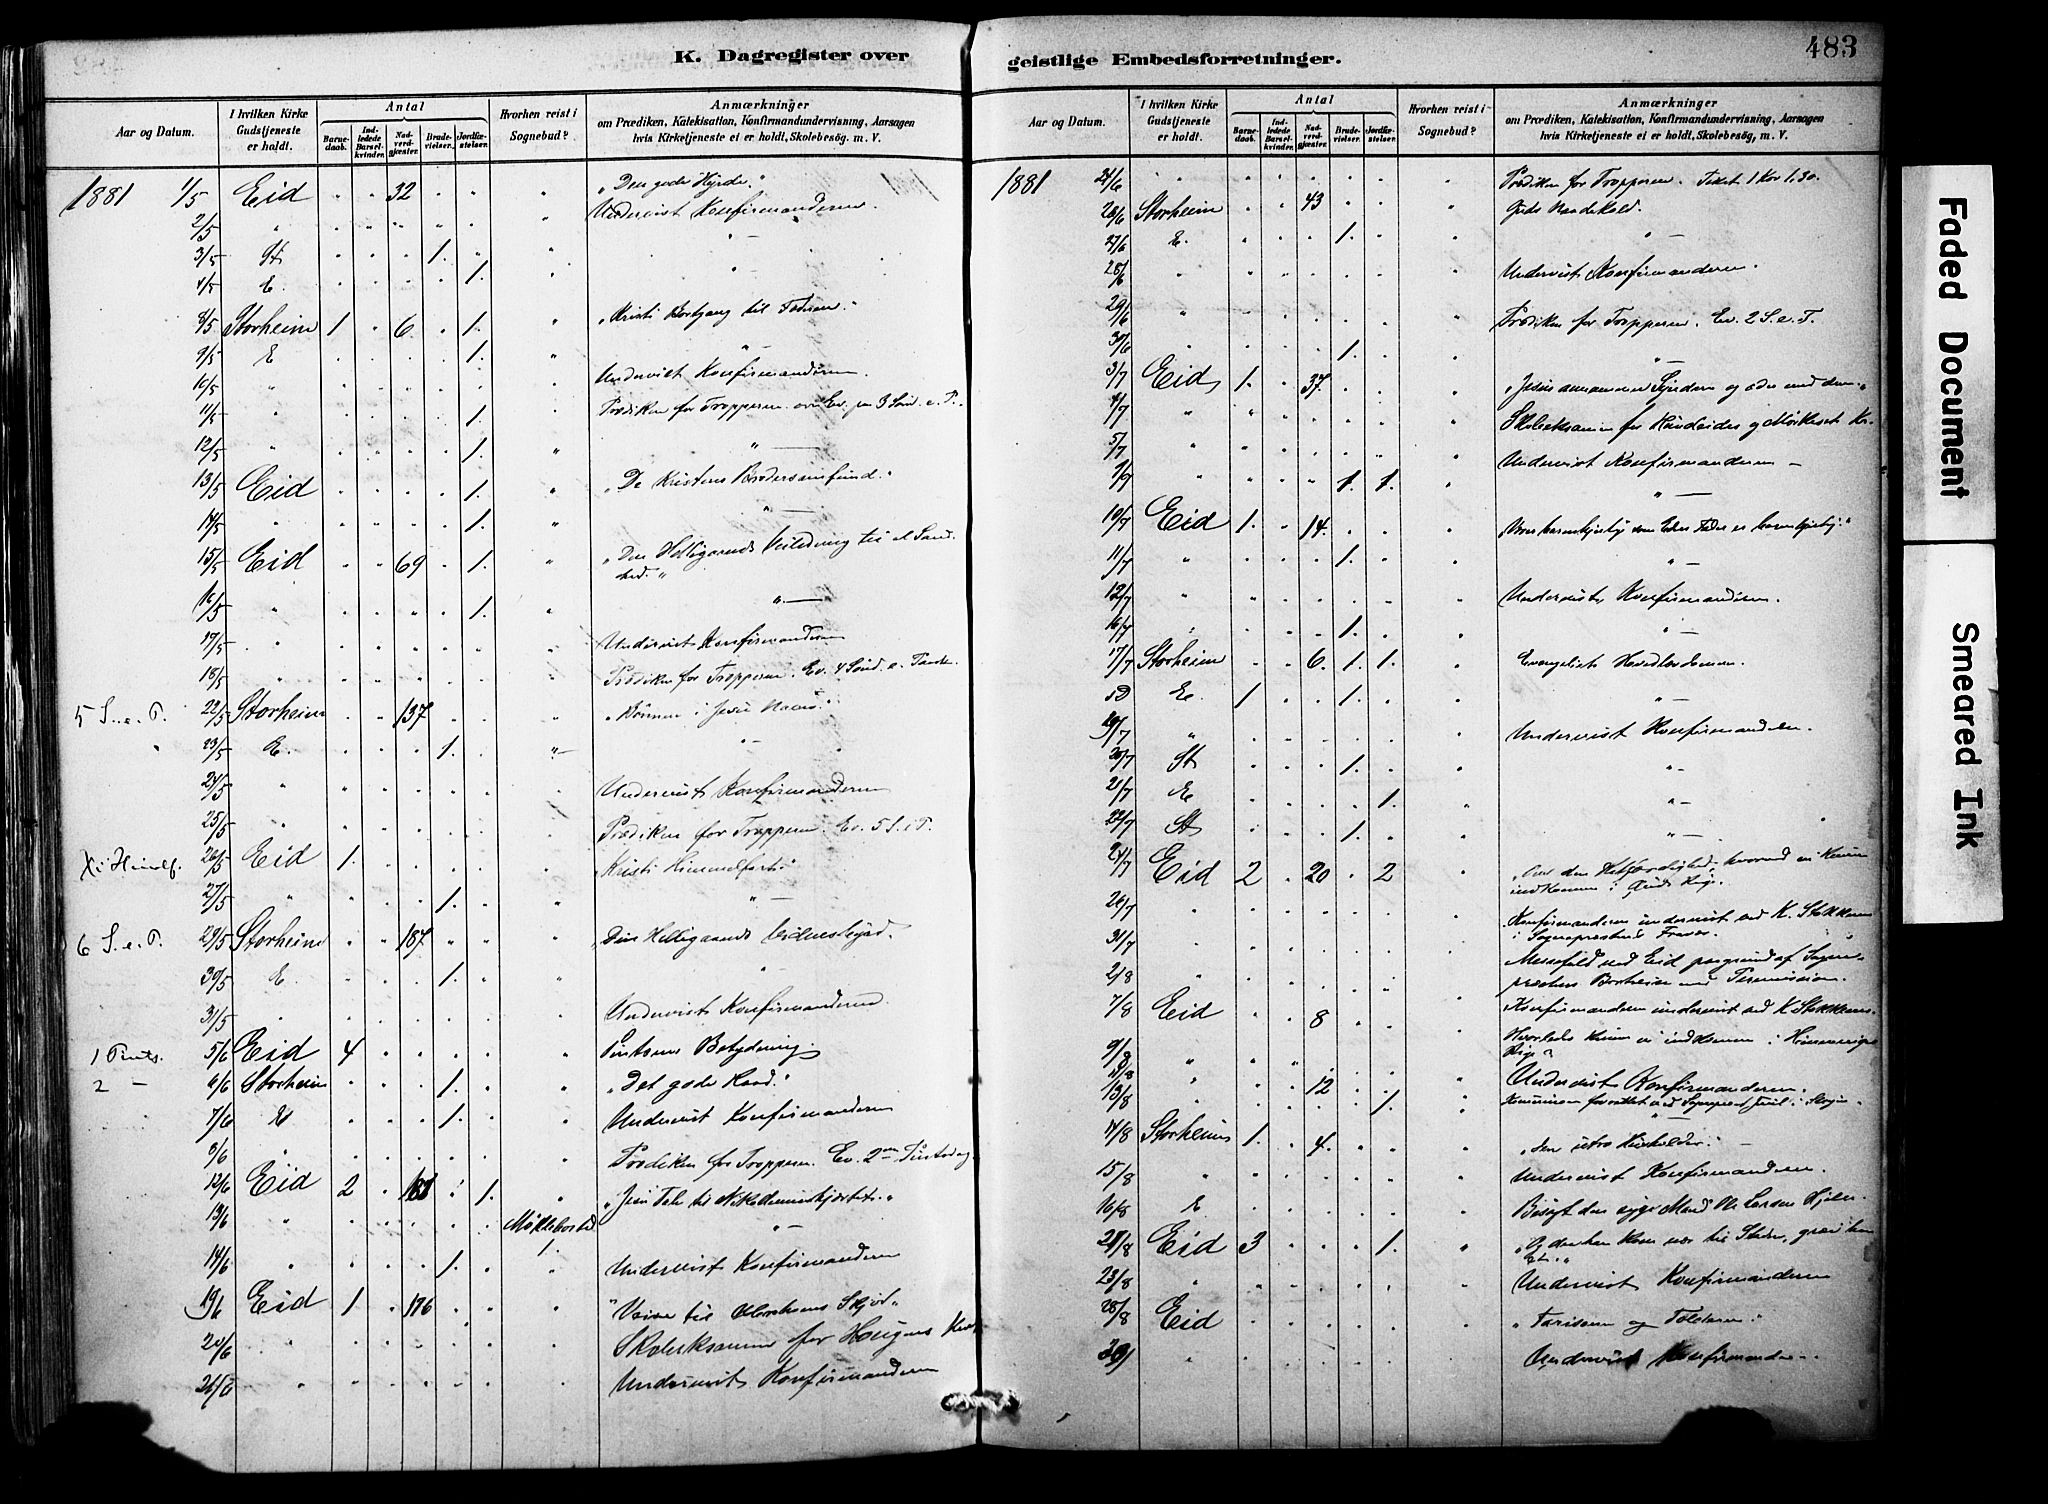 K. Dagregister over
Aar og Datum.
I hvilken Kirke Gudstjeneste er holdt.
Antal
Barne-daab.
Ind-ledede Barsel-kvinder.
Nad-verd-gjæster.
Brude-vielser.
Jordfæ-stelser.
Hvorhen reist i Sognebud?
Anmærkninger
om Prædiken, Katekisation, Konfirmandundervisning, Aarsagen
hvis Kirketjeneste ei er holdt, Skolebesøg. m. V.
1881 1/5 Eid " " 32 " " " "Den gode Hyrde."
2/5 " Undervist Konfirmanderne
3/5 St 1. "
4/5 E. 1. "
8/5 Storheim 1 " 6 " 1. " "Kristi Bortgang til Faderen."
9/5 E 1. "
10/5 " Undervist Konfirmanderne.
11/5 " 1. Prædiken for Tropperne over Ev. paa 3 Sønd. e. P.
12/5 " 1. "
13/5 Eid 1. " "De Kristnes Brodersamfund."
14/5 " 1. "
15/5 Eid " " 69 " 1. " "Den Helligaands Veiledning til al Sand-
hed."
16/5 " 1. "
17/5 " Undervist Konfirmanderne
18/5 " Prædiken for Tropperne. Ev. 4 Sønd. e. Paaske.
5 S. e. P. 22/5 Storheim 137 "Bønnen i Jesu Navn."
" 23/5 E. 1. "
24/5 " Undervist Konfirmanderne
25/5 " Prædiken for Tropperne. Ev. 5 S. e P.
Xi Himlf. 26/5 Eid 1. Kristi Himmelfart."
27/5 " 1. "
6 S. e. P. 29/5 Storheim " " 187 Den Helligaands Vidnesbyrd.
30/5 E. 1. "
31/5 " Undervist Konfirmanderne.
1 Pints. 5/6 Eid 4 Pintsens Betydning.
2 — 6/6 Storheim 1. "Det gode Raad."
7/6 E 1. Undervist Konfirmanderne
9/6 " Prædiken for Tropperne. Ev. 2den Pintsedag
12/6 Eid 2 1. "Jesu Tale til
13/6 " "
1.
14/6 " 1. Undervist Konfirmanderne
19/6 Eid 1 " 176 " " " "Veien til Abrahams Skjød"
20/6 " Skoleeksamen for Haugens
Undervist Konfirmanderne
geistlige Embedsforretninger.
483
Aar og Datum.
I hvilken Kirke Gudstjeneste er holdt.
Antal
Barne-daab.
Ind-ledede Barsel-kvinder.
Nad-verd-gjæster.
Brude-vielser.
Jordfæ-stelser.
Hvorhen reist i Sognebud?
Anmærkninger
om Prædiken, Katekisation, Konfirmandundervisning, Aarsagen
hvis Kirketjeneste ei er holdt, Skolebesøg, m. V.
1881 24/6 " Prædiken for Tropperne. Tekst 1 Kor 1,30.
26/6 Storheim 43 Guds Naadekald.
27/6 E. 1. "
28/6 " Undervist Konfirmanderne.
29/6 " Prædiken for Tropperne. Ev. 2 S. e. T.
30/6 " 1. "
3/7 Eid 1. " 37. "Jesus annammer Syndere og æder med dem."
4/7 " Skoleeksamen for
5/7 " Undervist Konfirmanderne —
9/7 " 1. 1. "
10/7 Eid 1. " 14. "Vær barmhjertig som Eders Fader er barmhjertig."
11/7 " 1. "
12/7 " Undervist Konfirmanderne.
16/7 " 1. "
17/7 Storheim 6. 1. 1. Evangeliets
E. 1 " 1. "
" Undervist Konfirmanderne.
20/7 St 1. "
21/7 E 1. "
22/7 St 1. "
24/7 Eid 2 " 20 " 2 "Om den Retfærdighed, hvorved vi kunne
indkomme i Guds Rige.
26/7 " Konfirmanderne undervist ved K. Stokkenes
i Sognepræstens Fravær.
31/7 " Messefald ved Eid paagrund af Sogne-
præstens Bortreise med Permission.
2/8 " Konfirmanderne undervist ved K. Stokkenes.
7/8 Eid 8 Hvorledes kunne vi indkomme i Himmeriges
Rige?
9/8 " Undervist Konfirmanderne.
12
13/8 1.
14/8 Storheim 1. " 4. "Den utro Husholder."
15/8 " Undervist Konfirmanderne.
16/8 E. Besøgt den syge Mand Ole Larsen
21/8 Eid 3 1. "Og der han kom nær til Staden, græd han
23/8 " Undervist Konfirmanderne
28/8 Eid "Farisæeren og Tolderen."
" Undervist Konfirmander
Faded Document
Smeared Ink